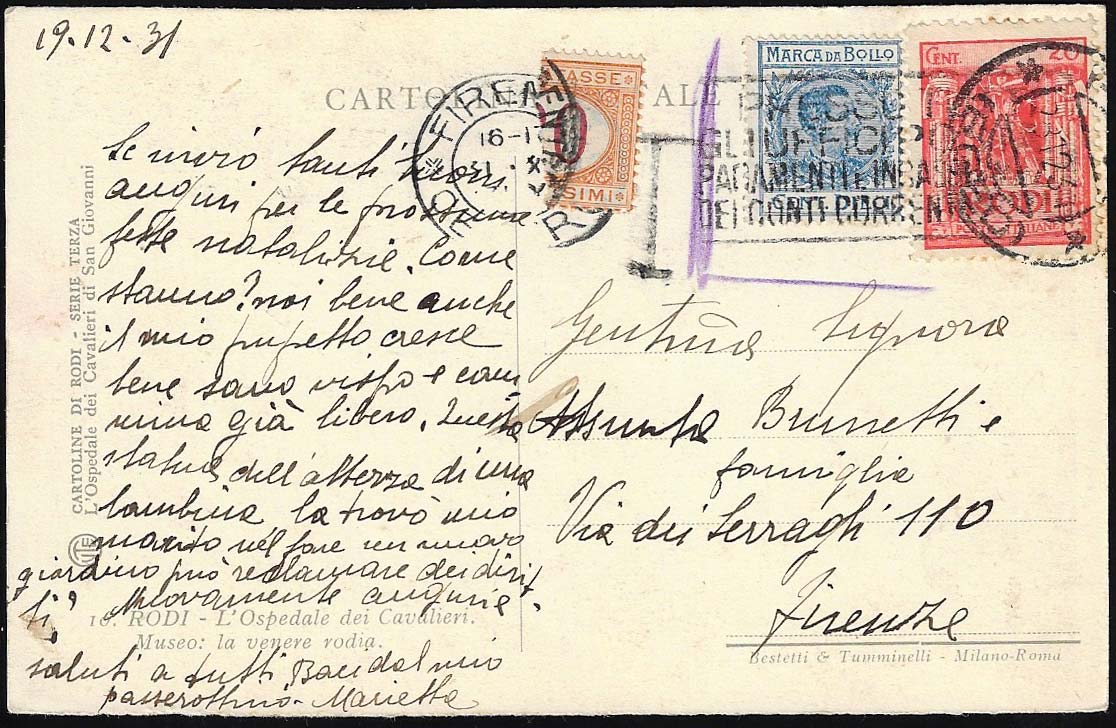 19.12.31
CARTOLINA POSTALE
TASSE
SIMI
FIRENZE
T
MARCA DA BOLLO
CENT. DIECI
CENT. 20
RODI
GLI UFFICI
PAGAMENTI E IN
DEI CONTI CORRENTI
Le invio tanti
auguri per le prossime
feste natalizie. Come
stanno? noi bene anche
il mio pupetto cresce
bene sano vispo e cam
mina già libero. Questa
statua dell'altezza di una
bambina la trovò mio
marito nel fare un nuovo
giardino può reclamare dei dirit
ti. Nuovamente auguri
saluti a tutti Baci dal mio
passerottino. Marietta
Gentilma Signora
Assunta Brunetti e
famiglia
Via dei Serragli 110
Firenze
CARTOLINE DI RODI - SERIE TERZA
L'Ospedale dei Cavalieri di San Giovanni
10. RODI - L'Ospedale dei Cavalieri.
Museo: la venere rodia.
Bestetti & Tumminelli - Milano-Roma